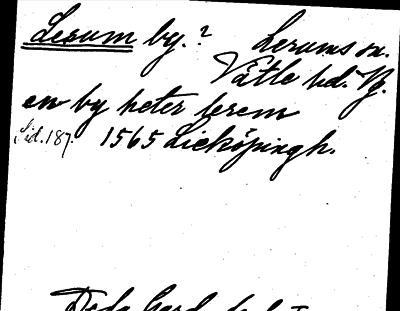 Lerum by.? Lerums sn.
Vättle hd. Vg.
en by heter lerem
Sid. 187. 1565 Lieköpingh.